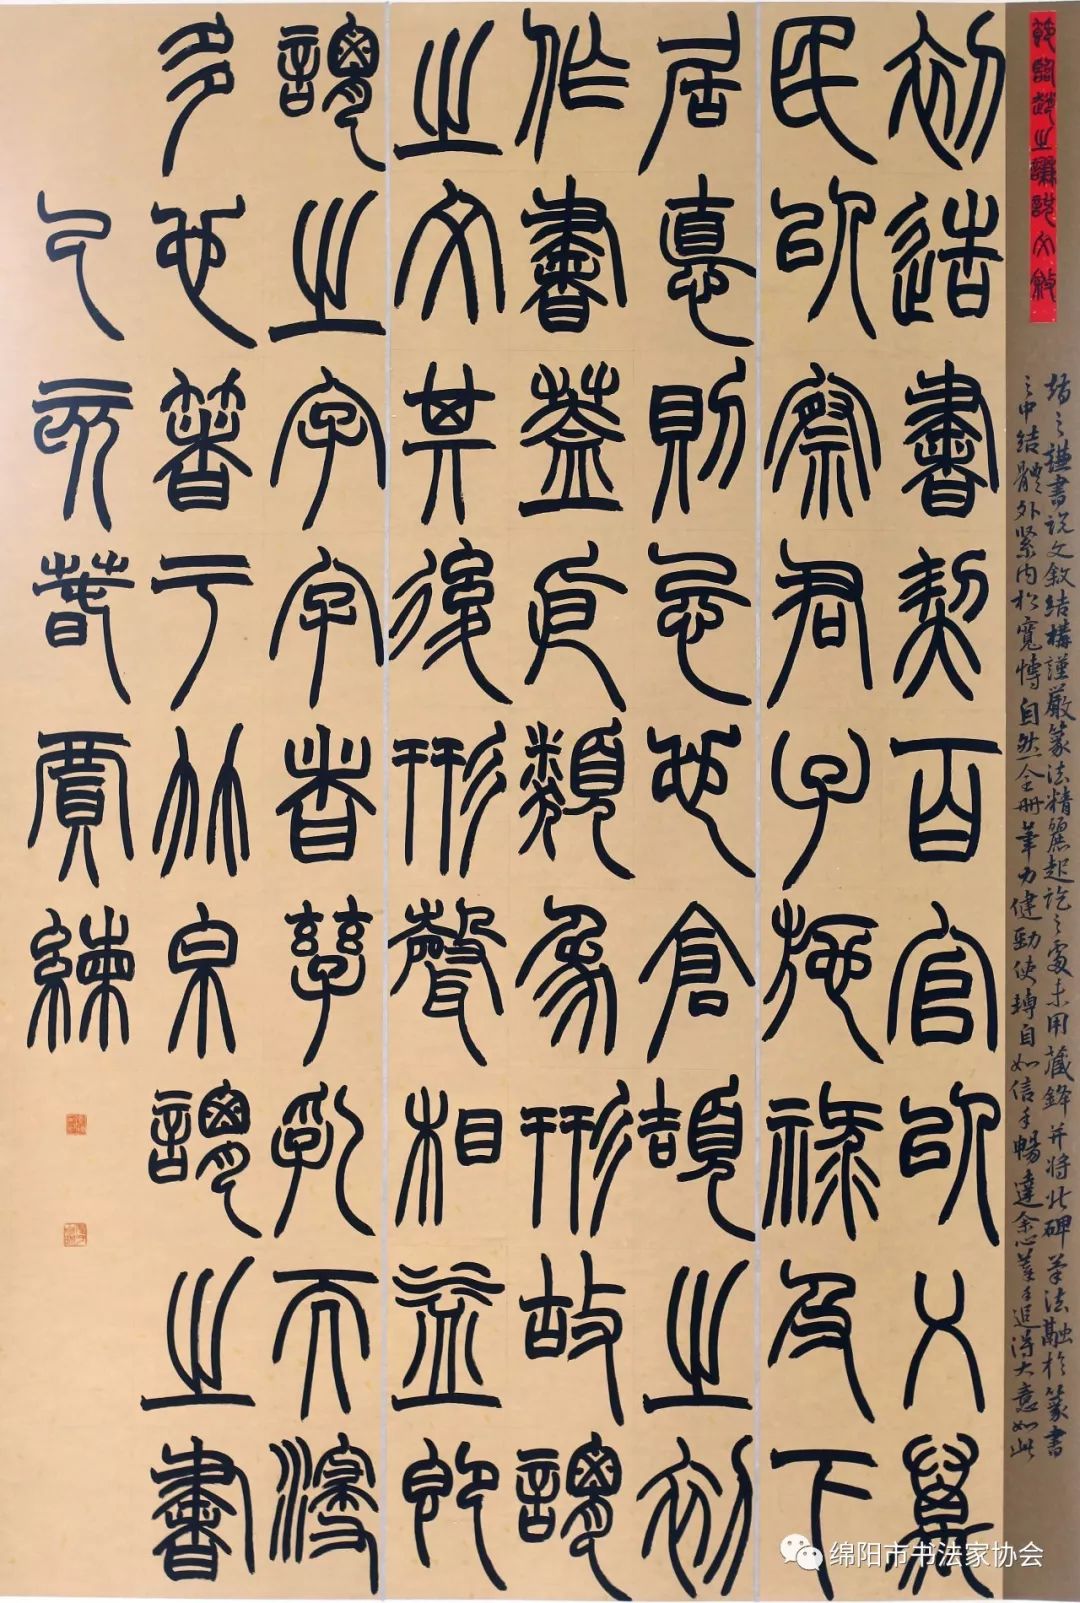 節臨趙之謙說文敘
趙之謙書说文敘结構謹嚴篆法精麗起訖之處未用藏鋒并将北碑筆法融於篆書
之中结體外緊内松寬博自然全册筆力健勁使轉自如信手暢達余心慕手追得大意如此
初造書契百官以乂萬
民以察君子施祿及下
居悳則忌也倉頡之初
作書蓋依類象形故謂
之文其後形聲相益即
謂之字字者孳乳而浸
多也箸于竹帛謂之書
己亥萅賈練
绵阳市书法家协会